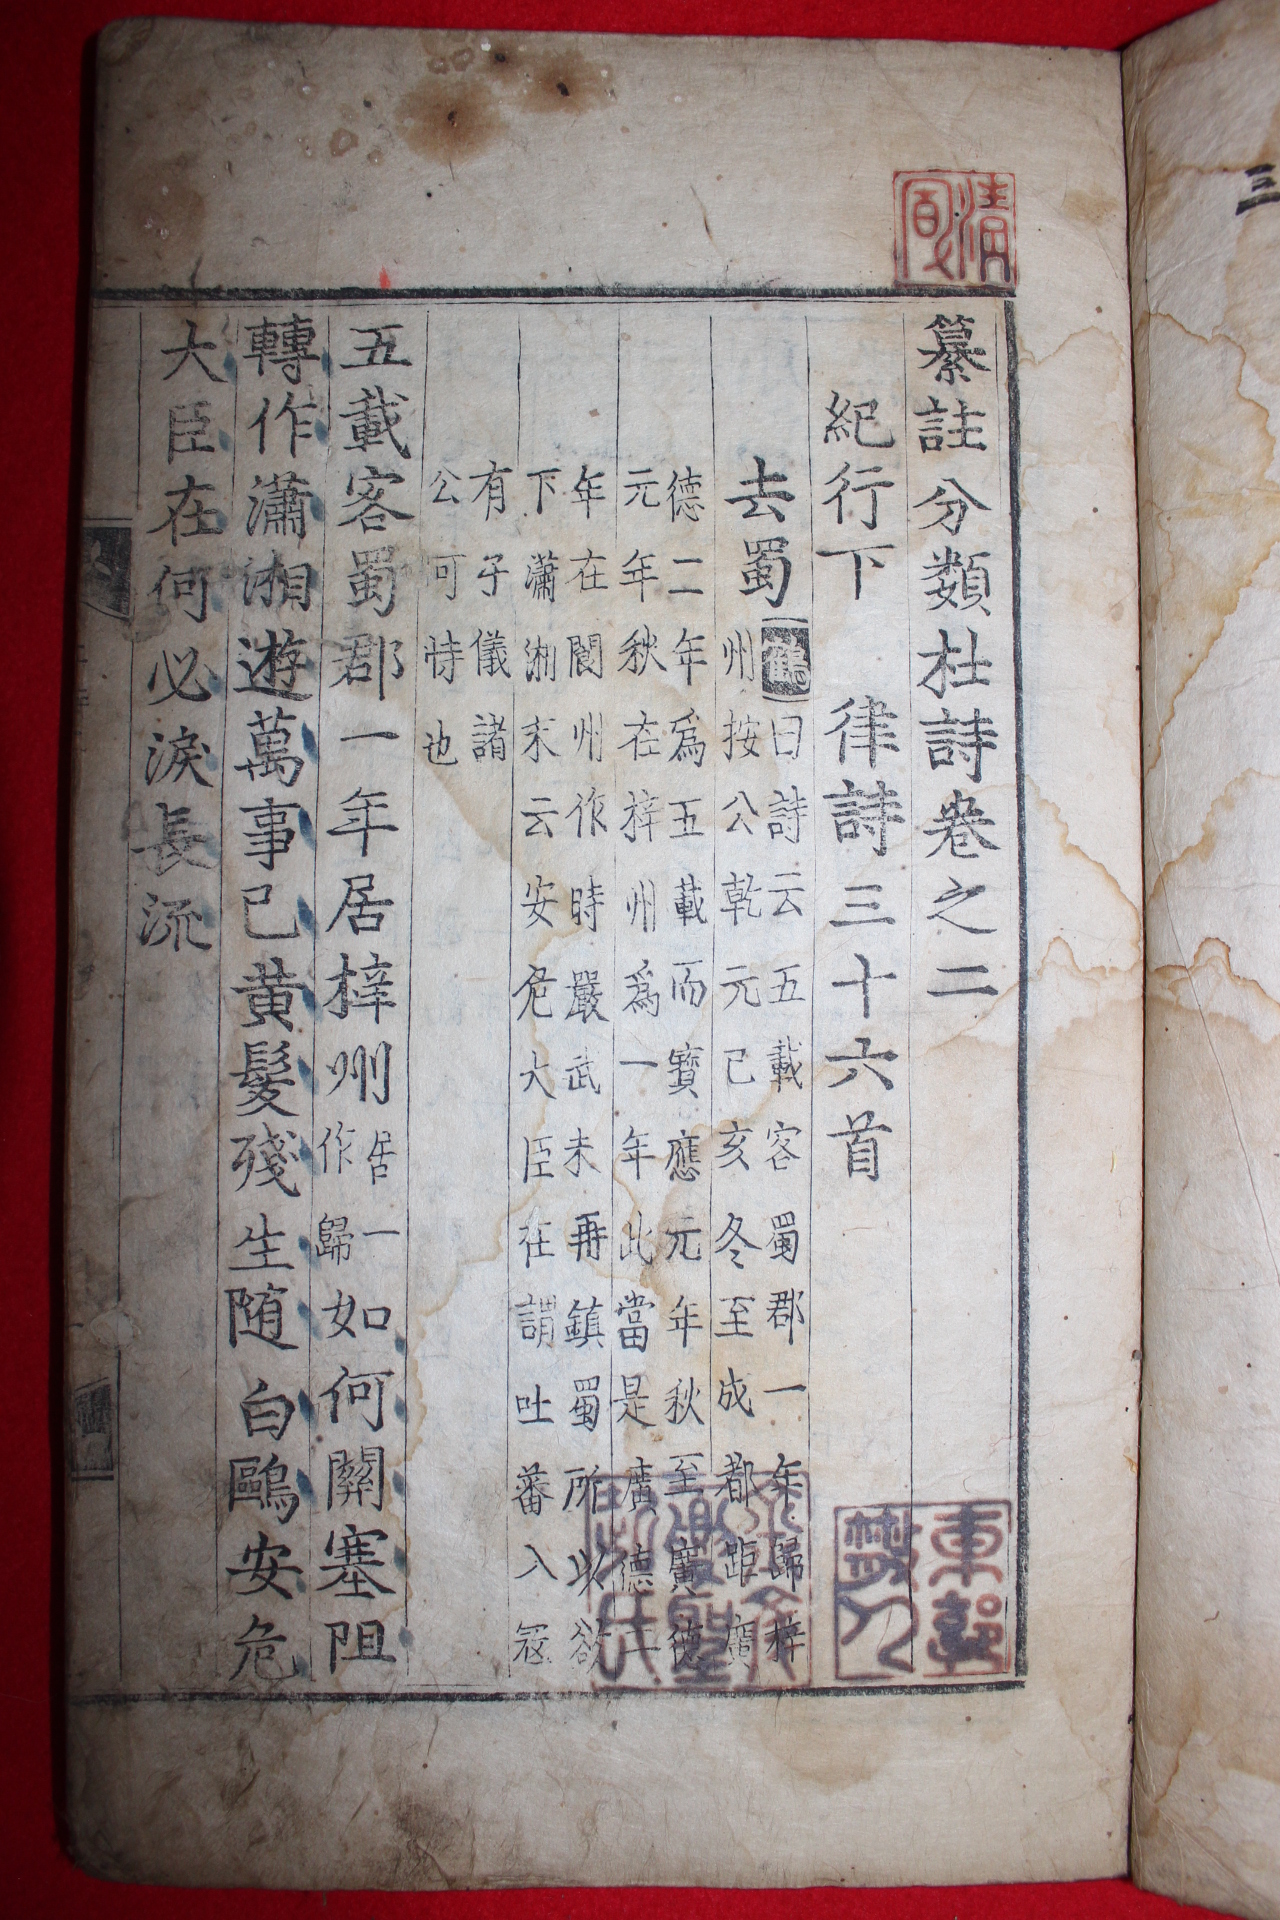 纂註分類杜詩卷之二
紀行下　律詩三十六首
去蜀 鶴曰詩云五載客蜀郡一年歸梓
州按公乾元己亥冬至成都距廣
德二年爲五載而寶應元年秋至廣德
元年秋在梓州爲一年此當是廣德二
年在閬州作時嚴武未再鎮蜀所以欲
下瀟湘末云安危大臣在謂吐蕃入寇
有子儀諸
公可恃也
五載客蜀郡一年居梓州居一作歸如何關塞阻
轉作瀟湘遊萬事已黃髮殘生随白鷗安危
大臣在何必淚長流